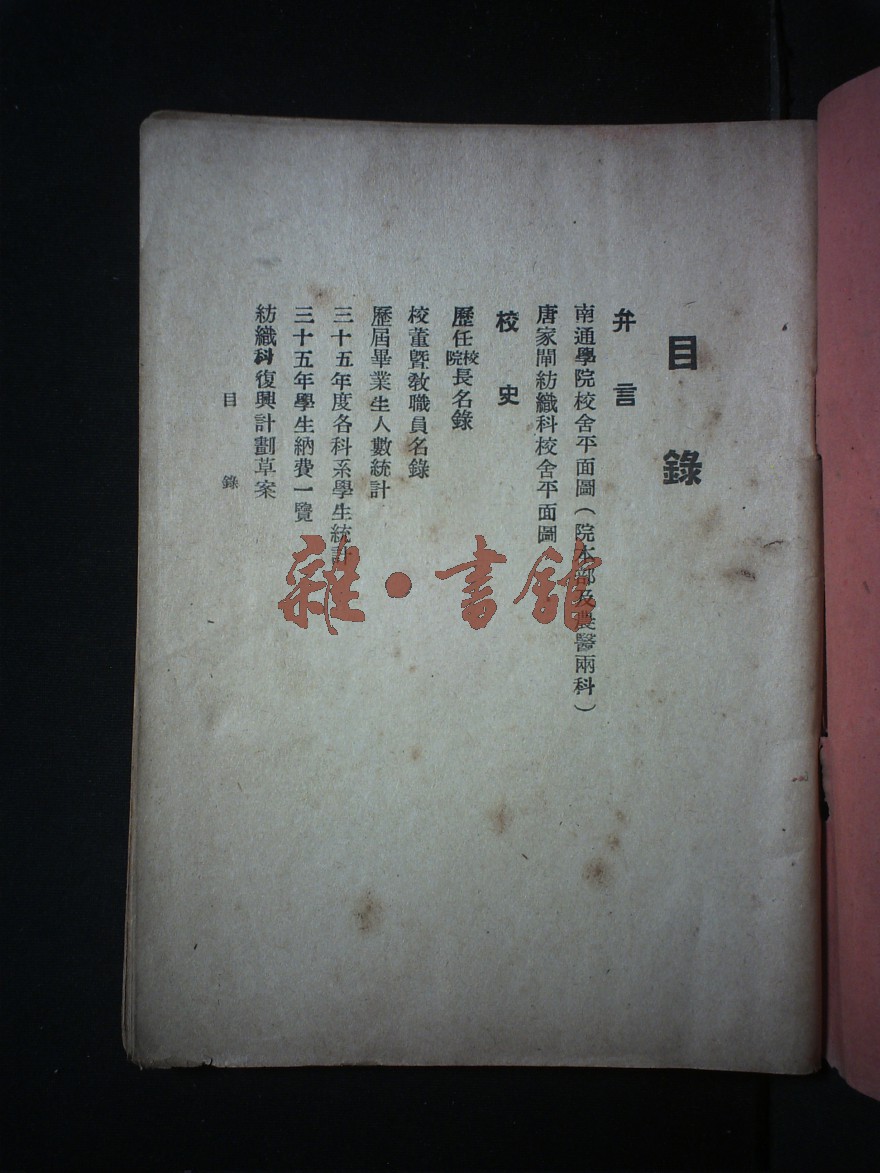 目錄
弁言
南通學院校舍平面圖(院本部及農醫兩科)
唐家閘紡織科校舍平面圖
校史
歷任校院長名錄
校董暨敎職員名錄
歷屆畢業生人數統計
三十五年度各科系學生統計
三十五年學生納費一覽
紡織科復興計劃草案
目錄
雜·書館